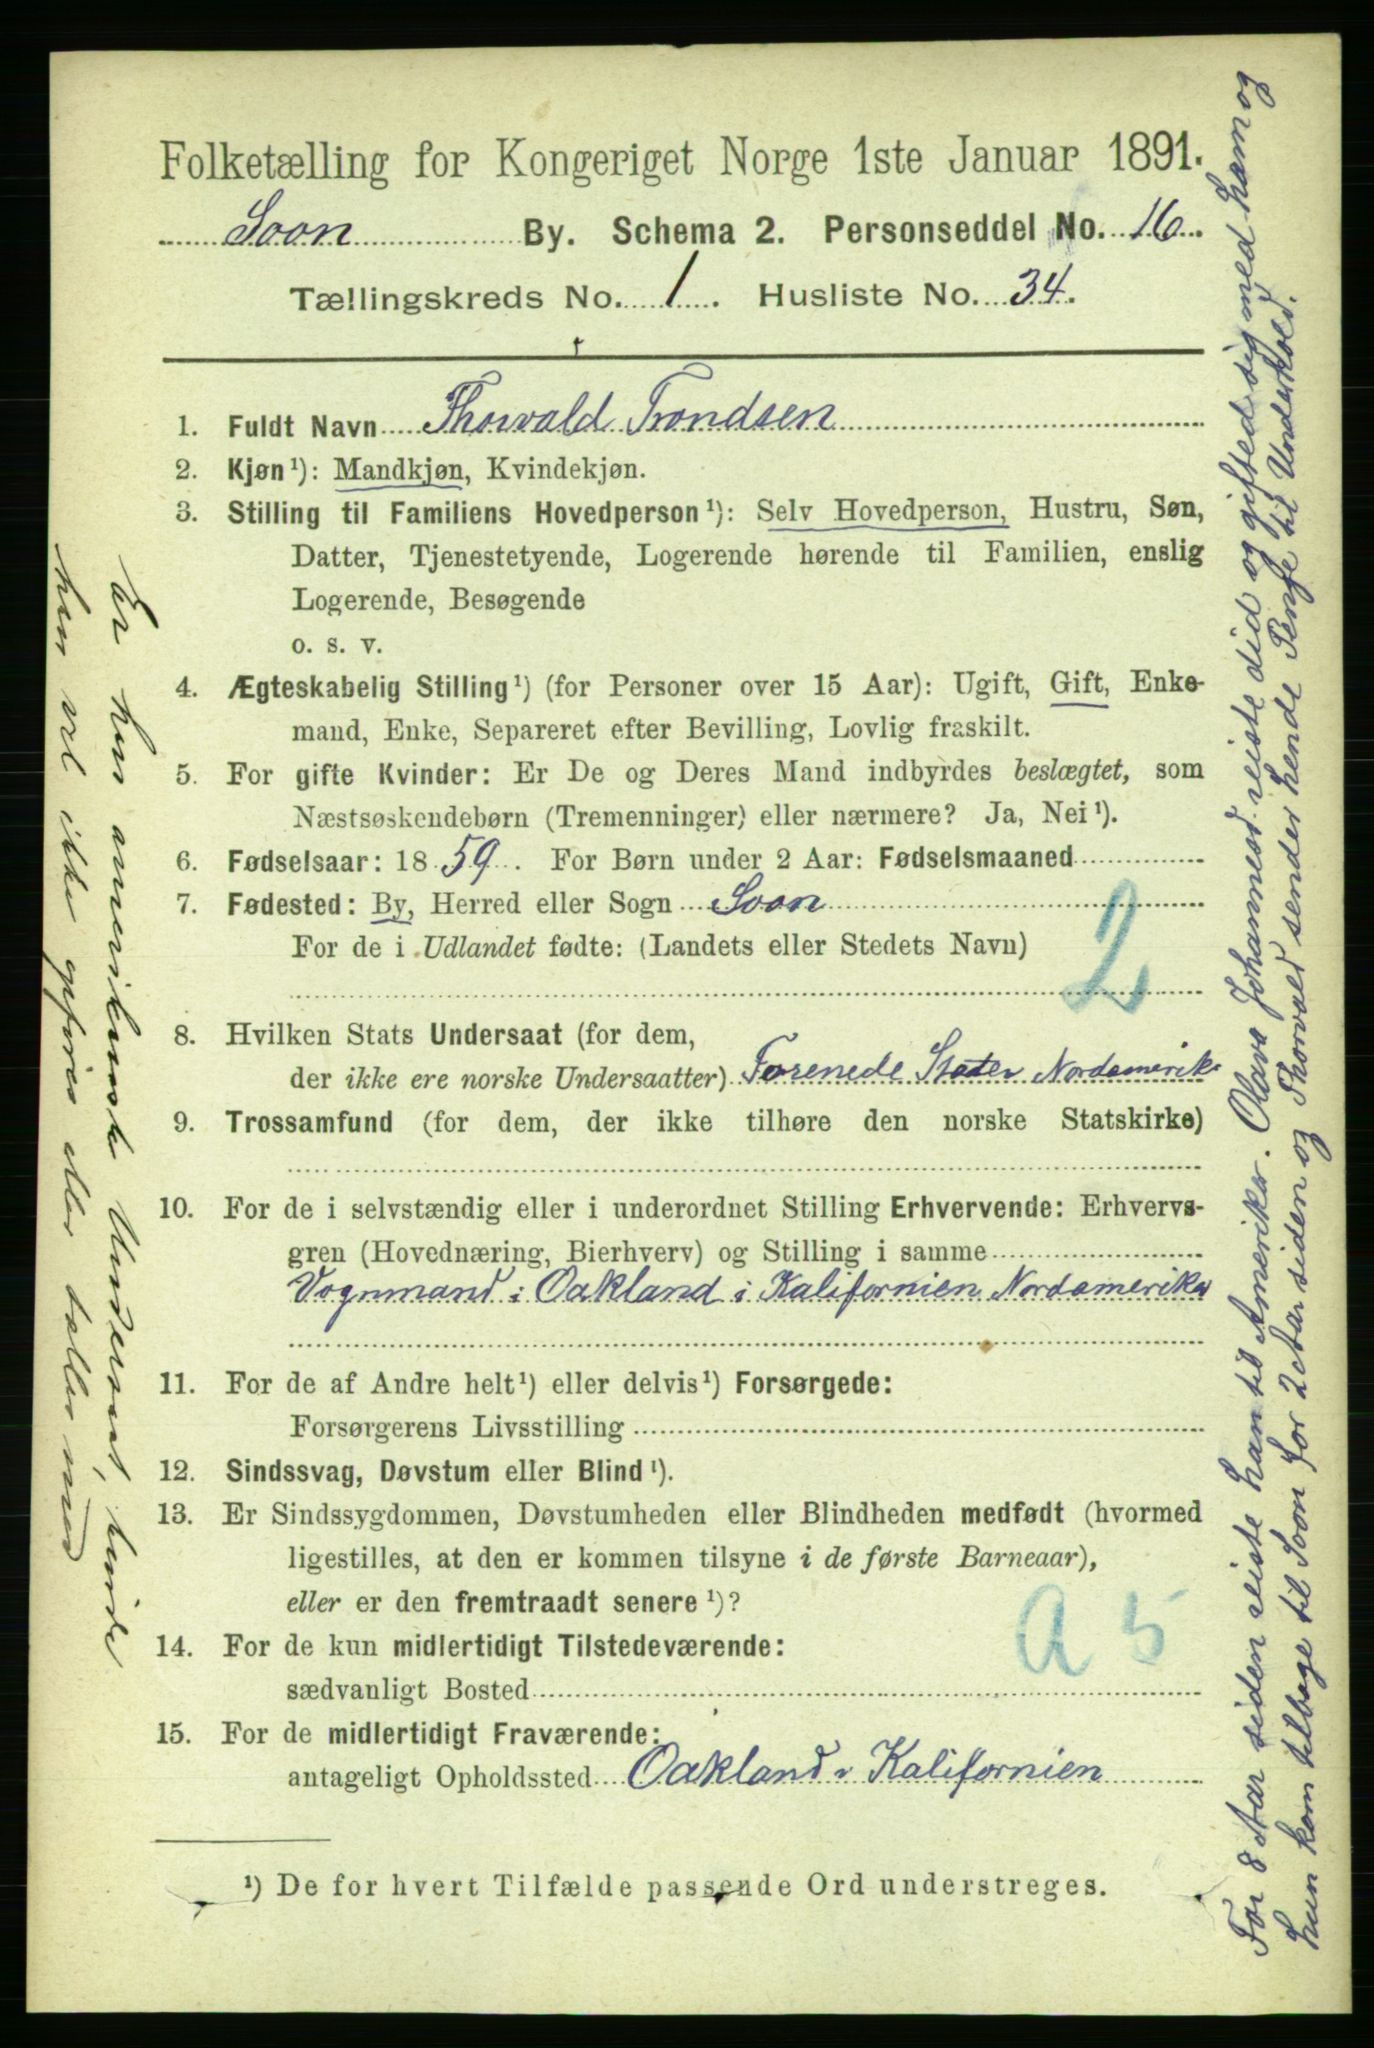 Folketælling for Kongeriget Norge 1ste Januar 1891.
Soon By. Schema 2. Personseddel No. 16.
Tællingskreds No. 1. Husliste No. 34.
1. Fuldt Navn Thorvald Trondsen
2. Kjøn ¹): Mandkjøn, Kvindekjøn.
3. Stilling til Familiens Hovedperson ¹): Selv Hovedperson, Hustru, Søn,
Datter, Tjenestetyende, Logerende hørende til Familien, enslig
Logerende, Besøgende
o. s. v.
4. Ægteskabelig Stilling ¹) (for Personer over 15 Aar): Ugift, Gift, Enke-
mand, Enke, Separeret efter Bevilling, Lovlig fraskilt.
5. For gifte Kvinder: Er De og Deres Mand indbyrdes beslægtet, som
Næstsøskendebørn (Tremenninger) eller nærmere? Ja, Nei ¹).
6. Fødselsaar: 1859. For Børn under 2 Aar: Fødselsmaaned
7. Fødested: By, Herred eller Sogn Soon
For de i Udlandet fødte: (Landets eller Stedets Navn)
2
8. Hvilken Stats Undersaat (for dem,
der ikke ere norske Undersaatter) Forenede Stater Nordamerik
9. Trossamfund (for dem, der ikke tilhøre den norske Statskirke)
10. For de i selvstændig eller i underordnet Stilling Erhvervende: Erhvervs-
gren (Hovednæring, Bierhverv) og Stilling i samme
Vognmand i Oakland i Kalifornien Nordamerika
11. For de af Andre helt ¹) eller delvis ¹) Forsørgede:
Forsørgerens Livsstilling
12. Sindssvag, Døvstum eller Blind ¹).
13. Er Sindssygdommen, Døvstumheden eller Blindheden medfødt (hvormed
ligestilles, at den er kommen tilsyne i de første Barneaar),
eller er den fremtraadt senere ¹)?
a 5
14. For de kun midlertidigt Tilstedeværende:
sædvanligt Bosted
15. For de midlertidigt Fraværende:
antageligt Opholdssted Oakland i Kalifornien
¹) De for hvert Tilfælde passende Ord understreges.
For 8 Aar siden reiste han til Amerika. Olava Johannesd. reiste did og gifted sig med ham og
hun kom tilbage til Soon for 2 Aar siden og Thorvald sender hende Penge til Underhold.
Er hun amerikansk Undersaat, kunde
hun vel ikke opføres eller tælles med